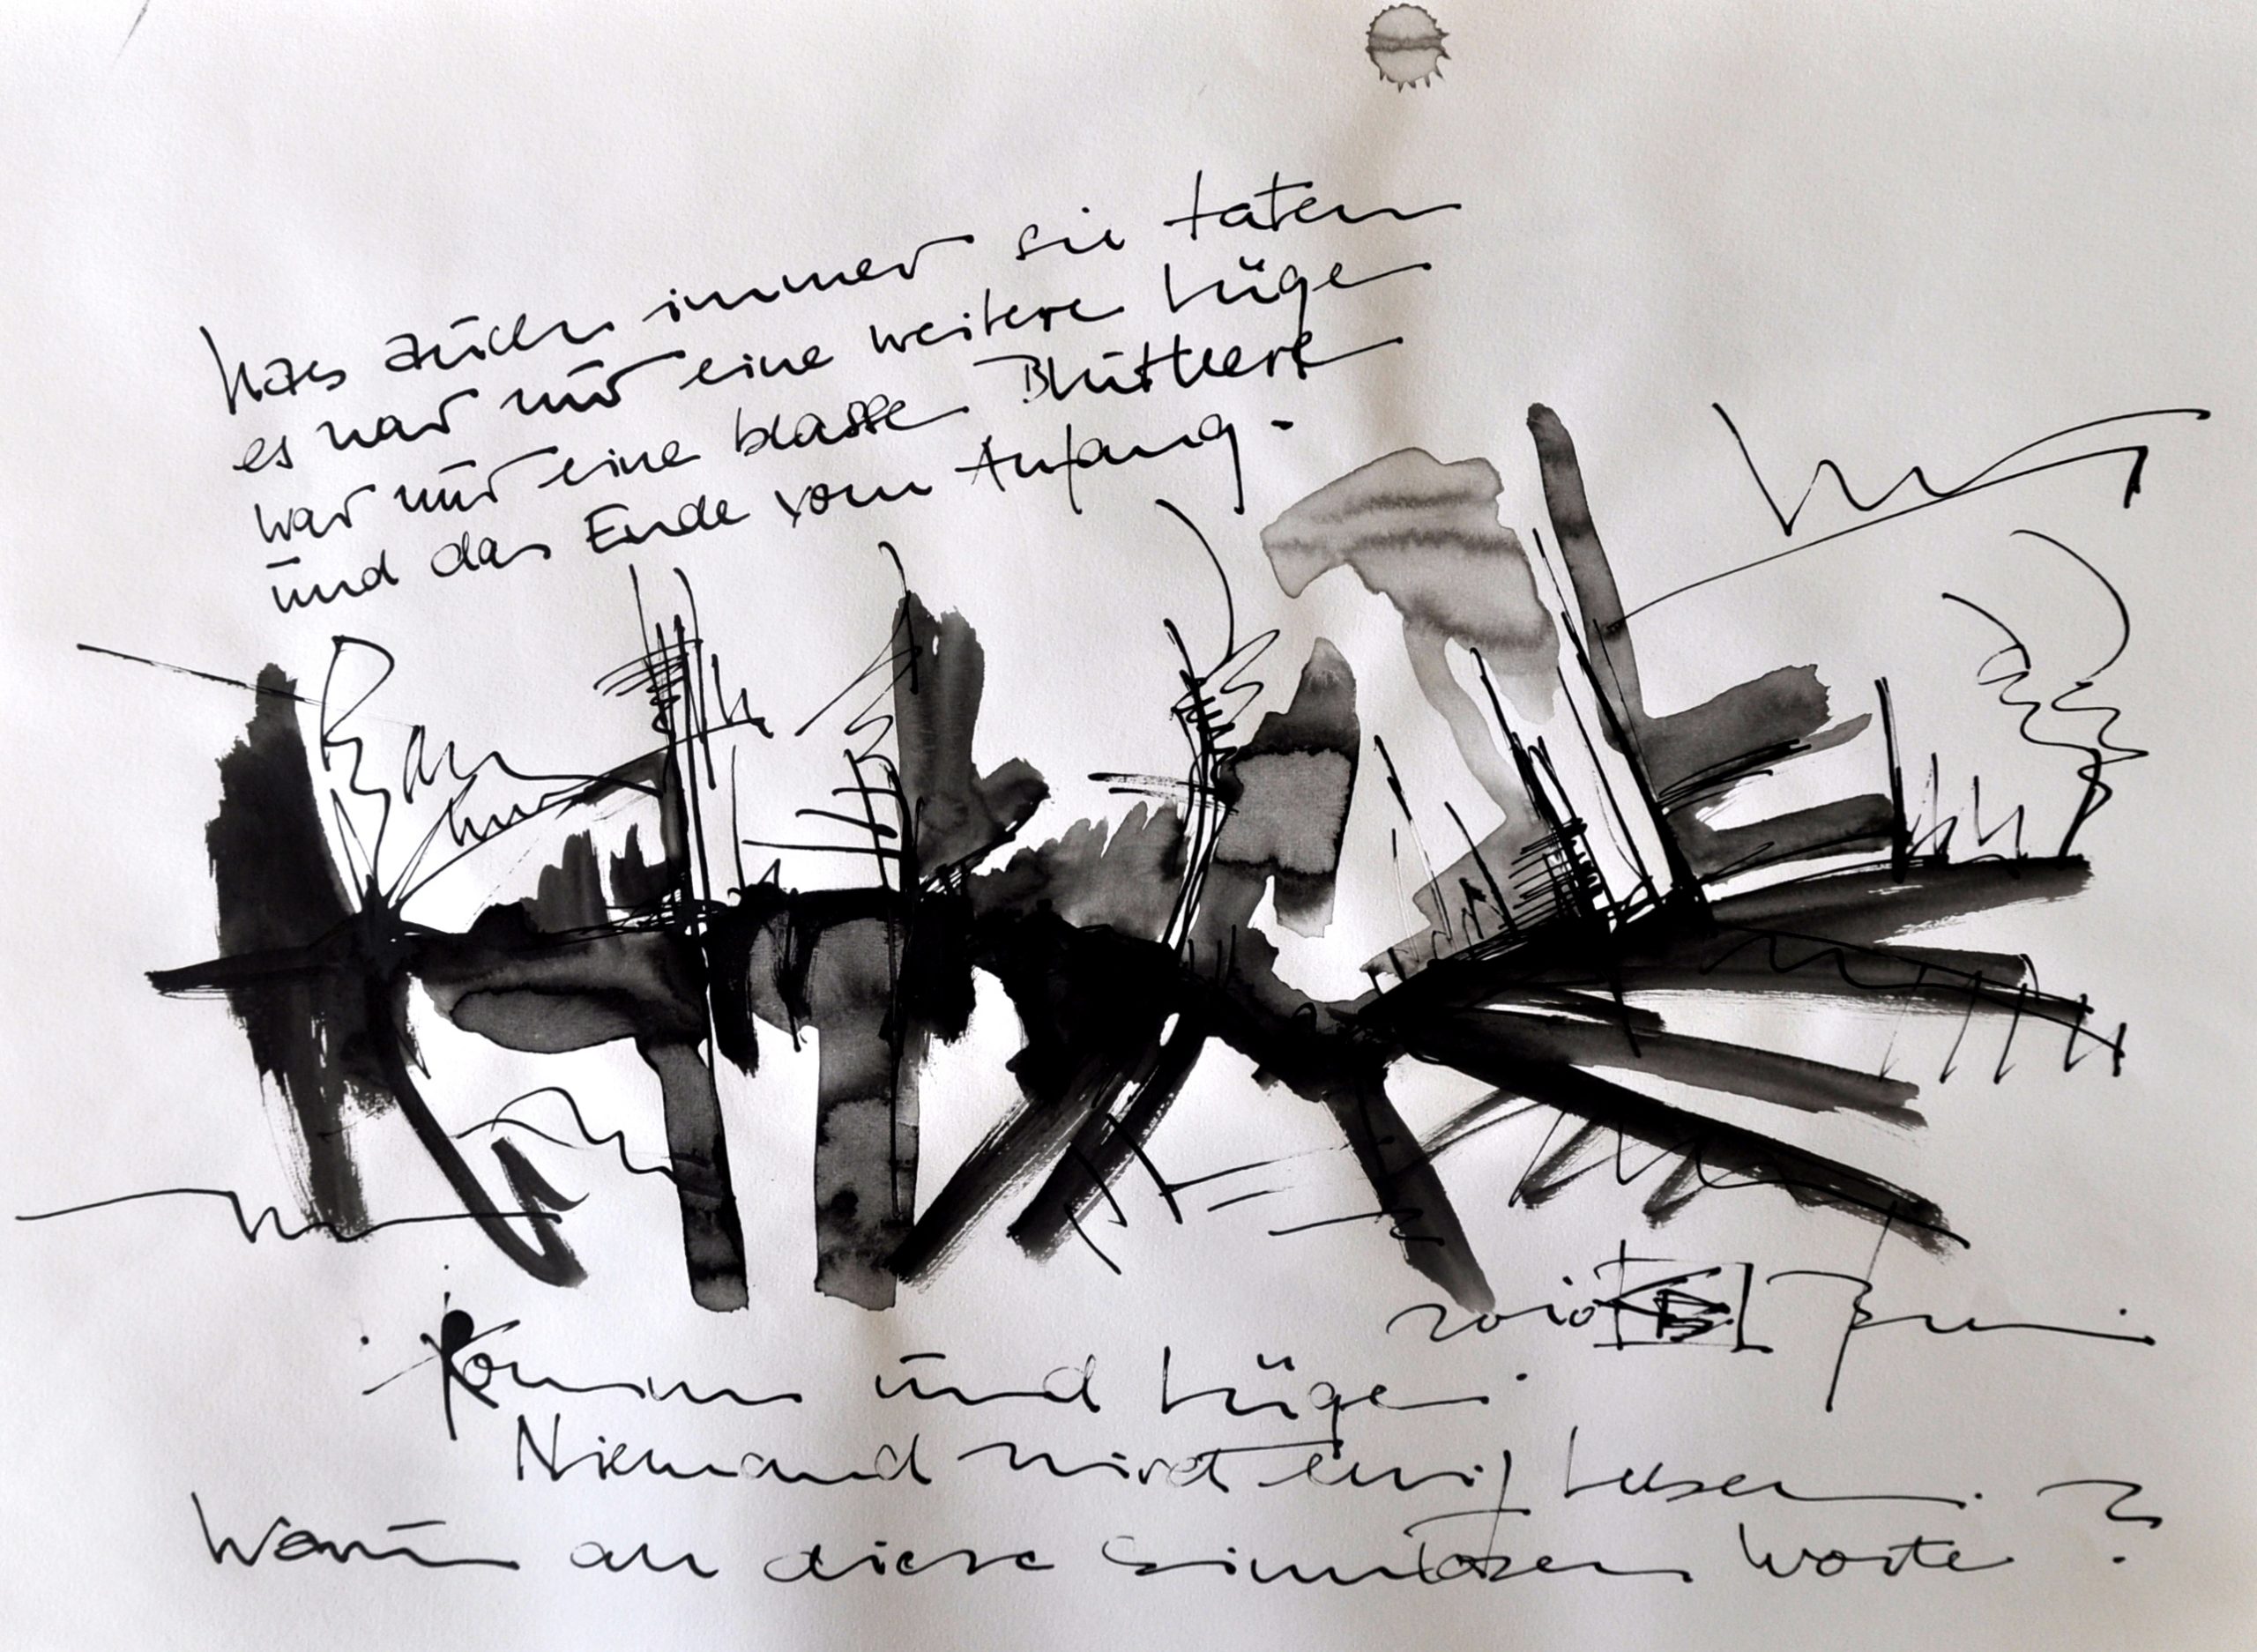 Was auch immer sie taten
es war nur eine weitere Lüge
war nur eine blasse Blutleere
und das Ende vom Anfang.
2010 KB
Komm und Lüge.
Niemand wird ewig Leben.
Warum all diese sinnlosen Worte ?